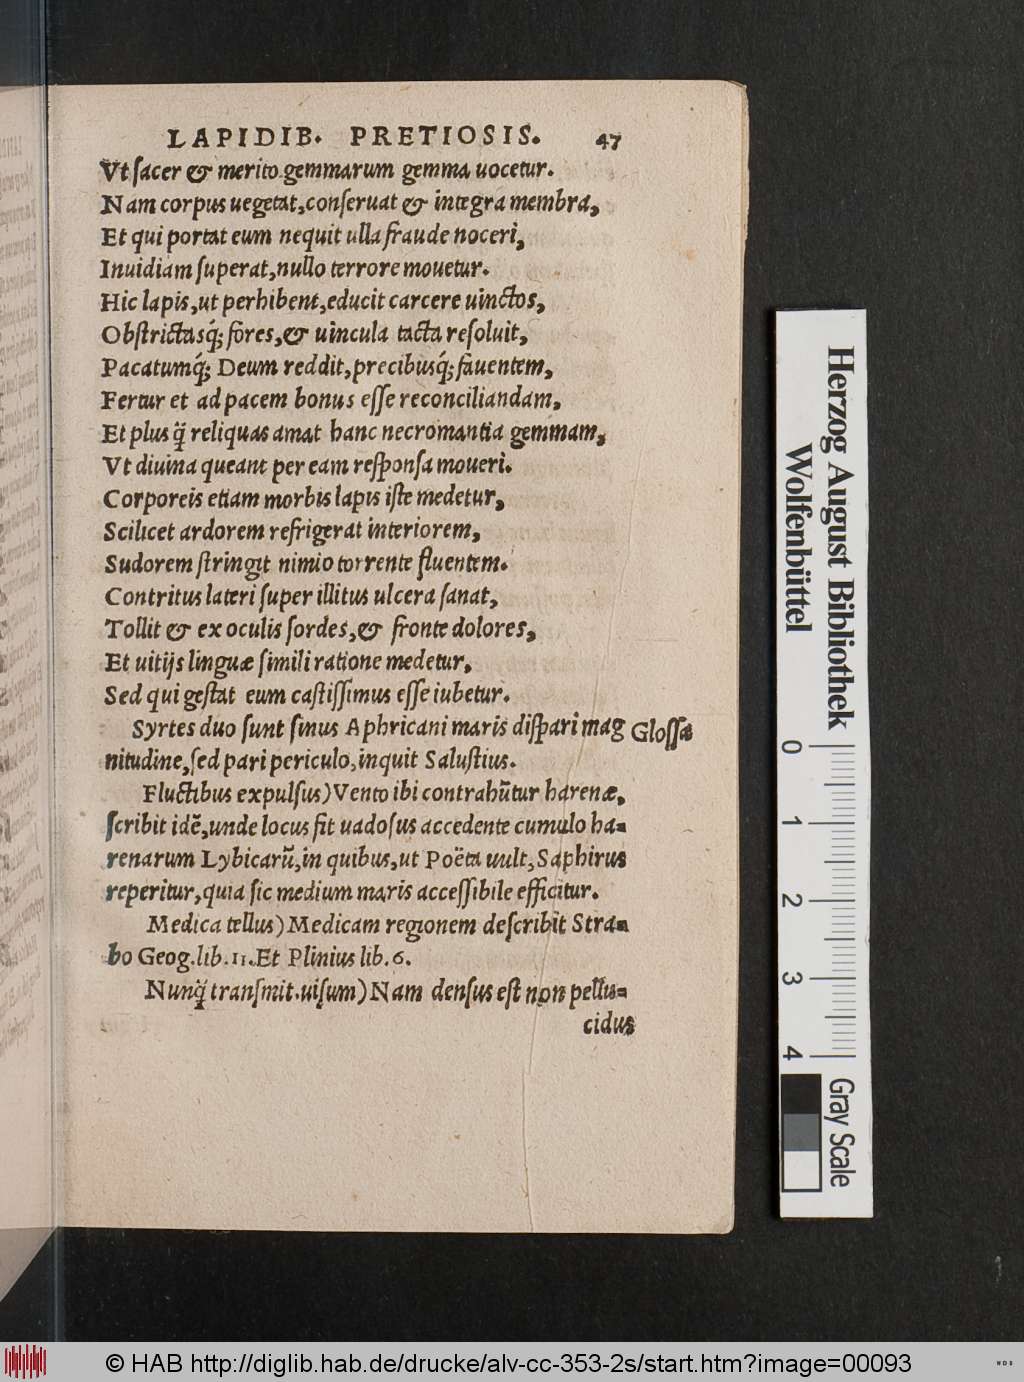 LAPIDIB. PRETIOSIS. 47
Vt ſacer & merito gemmarum gemma uocetur.
Nam corpus uegetat, conſeruat & integra membra,
Et qui portat eum nequit ulla fraude noceri,
Inuidiam ſuperat, nullo terrore mouetur.
Hic lapis, ut perhibent, educit carcere uinctos,
Obſtrictasq́; fores, & uincula tacta reſoluit,
Pacatumq́; Deum reddit, precibusq́; fauentem,
Fertur et ad pacem bonus eſſe reconciliandam,
Et plus q̈̃ reliquas amat hanc necromantia gemmam,
Vt diuina queant per eam reſponſa moueri.
Corporeis etiam morbis lapis iſte medetur,
Scilicet ardorem refrigerat interiorem,
Sudorem ſtringit nimio torrente fluentem.
Contritus lateri ſuper illitus ulcera ſanat,
Tollit & ex oculis ſordes, & fronte dolores,
Et uitijs linguæ ſimili ratione medetur,
Sed qui geſtat eum caſtiſſimus eſſe iubetur.
Syrtes duo ſunt ſinus Aphricani maris diſpari mag Gloſſæ
nitudine, ſed pari periculo, inquit Saluſtius.
Fluctibus expulſus) Vento ibi contrahũtur harenæ,
ſcribit idẽ, unde locus fit uadoſus accedente cumulo ha-
renarum Lybicarũ, in quibus, ut Poëta uult, Saphirus
reperitur, quia ſic medium maris acceſſibile efficitur.
Medica tellus) Medicam regionem deſcribit Stra-
bo Geog. lib. 11. Et Plinius lib. 6.
Nunq̈̃ tranſmit. uiſum) Nam denſus eſt non pellu-
cidus
Herzog August Bibliothek
Wolfenbüttel
0 1 2 3 4
Gray Scale
© HAB http://diglib.hab.de/drucke/alv-cc-353-2s/start.htm?image=00093